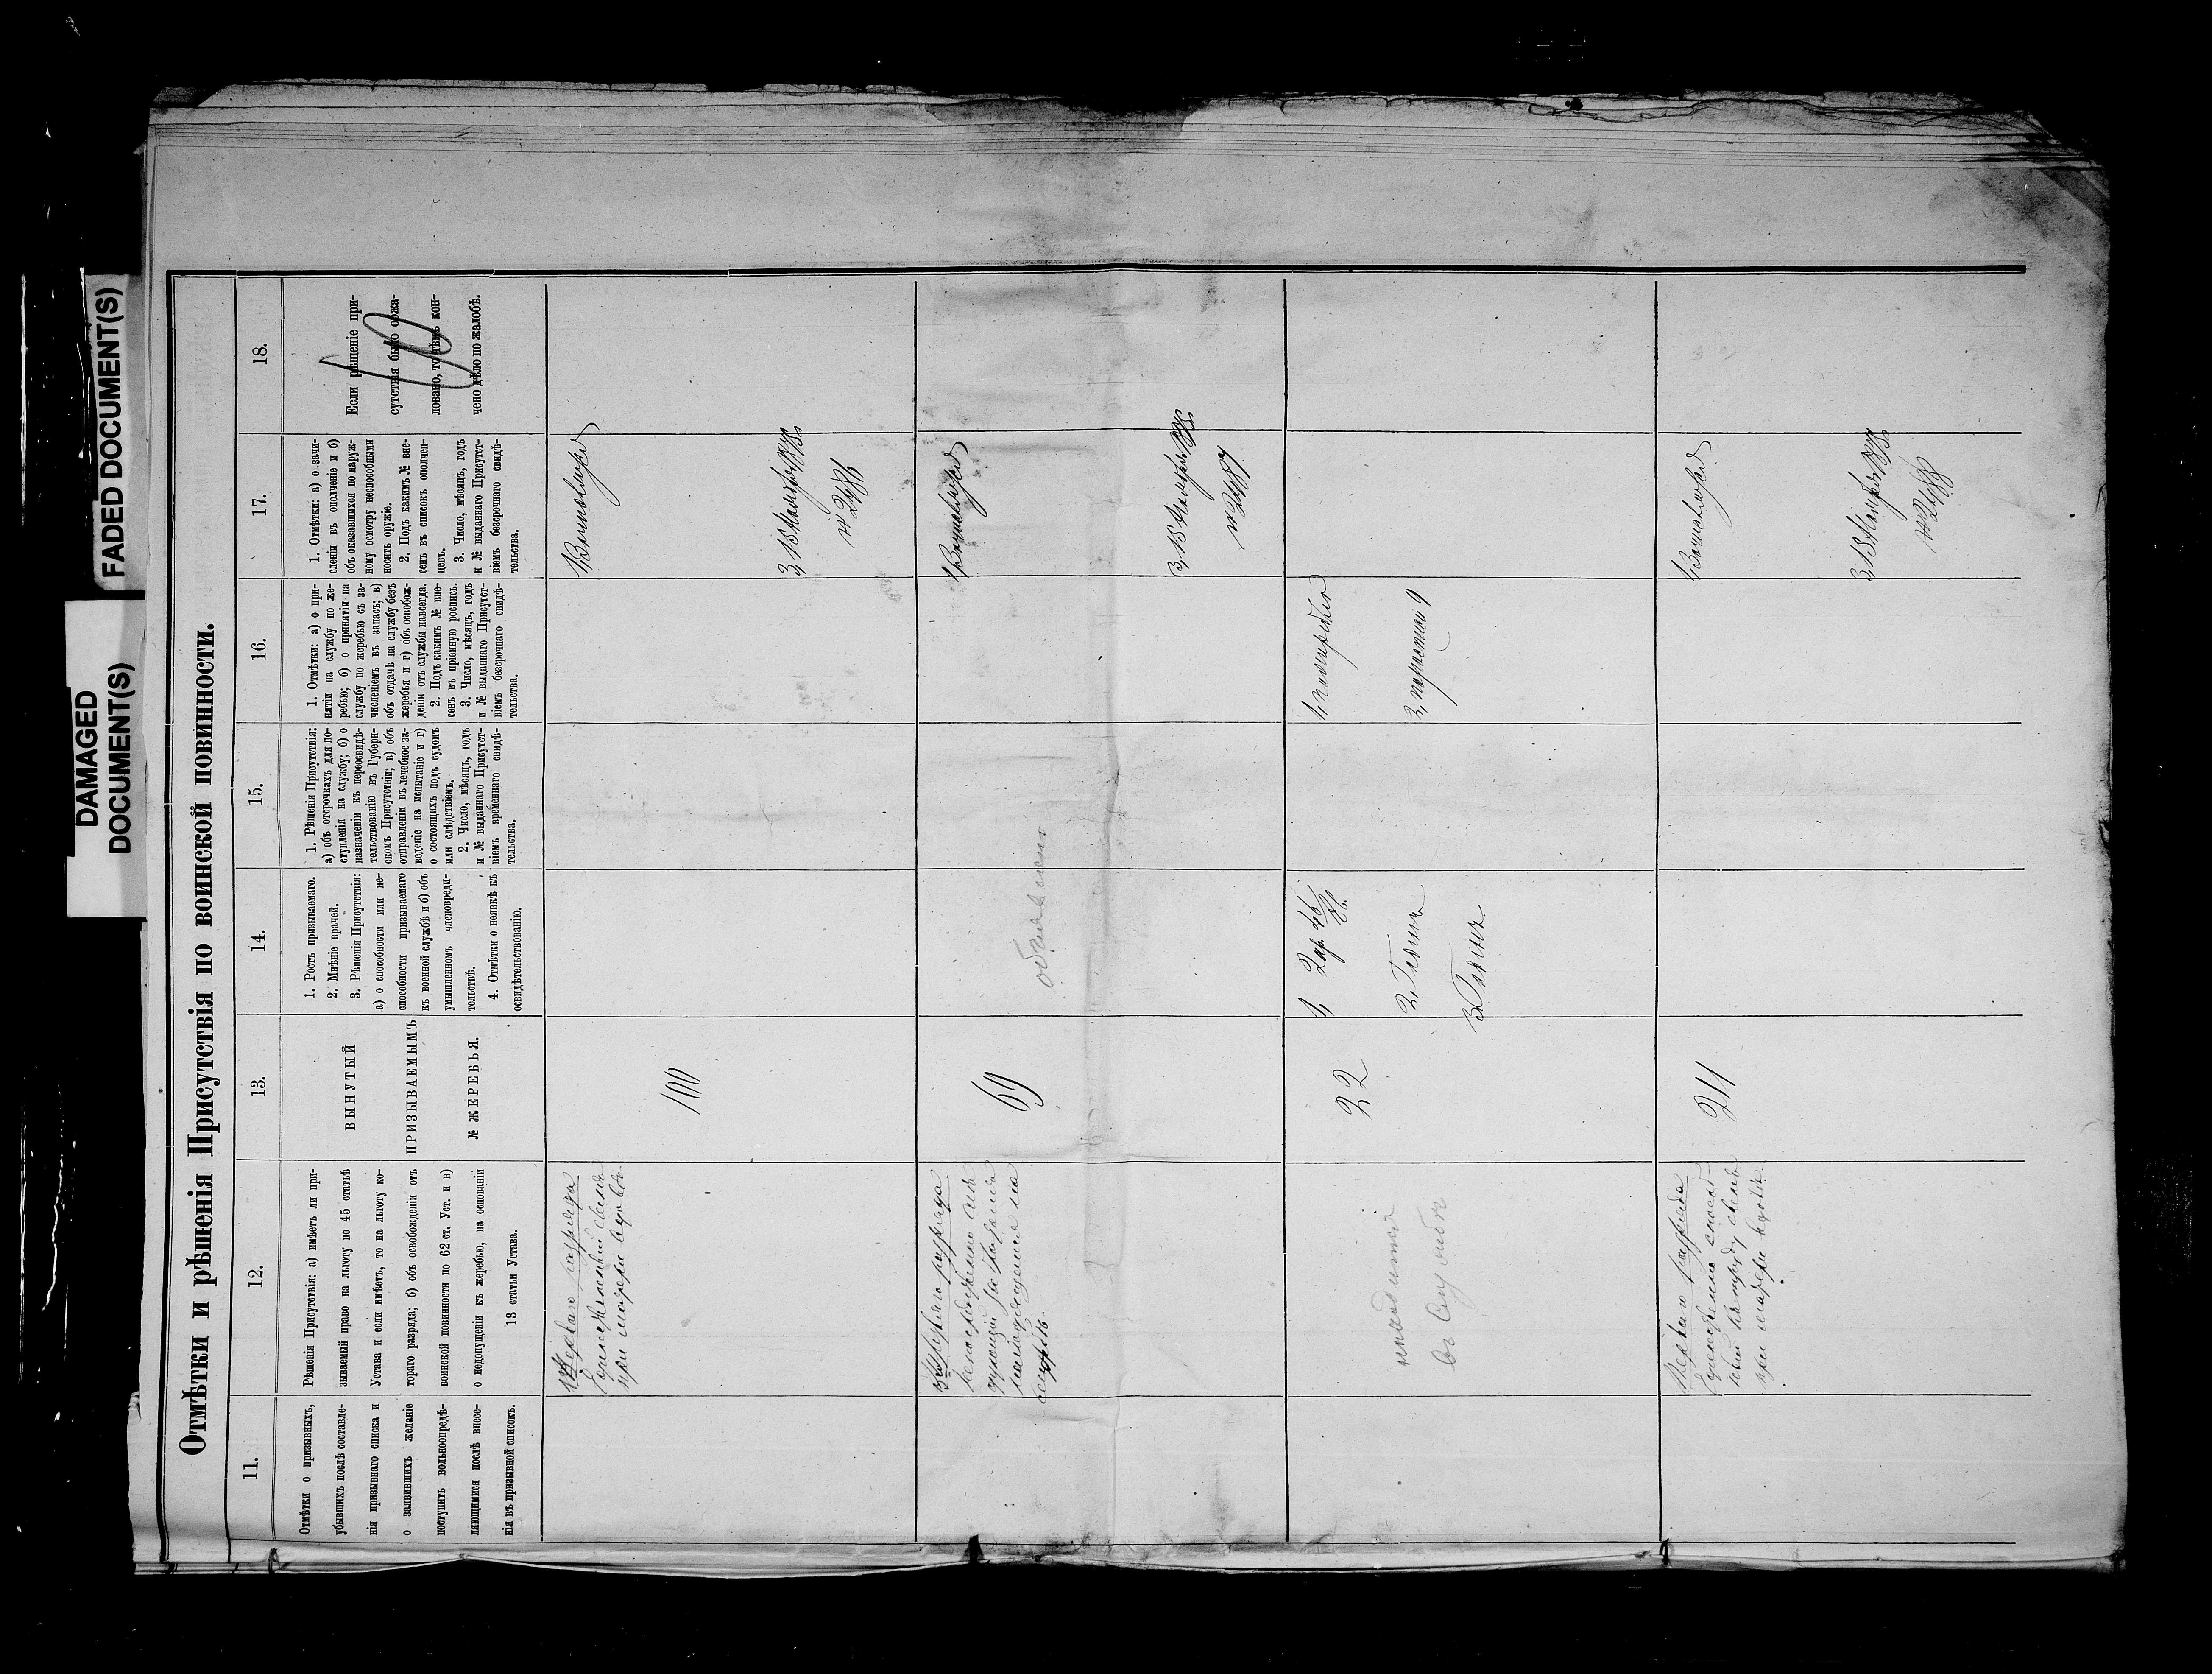 FADED DOCUMENT(S)
DAMAGED
DOCUMENT(S)
Отмѣтки и рѣшенія Присутствія по воинской повинности.
11.
Отмѣтки о призывныхъ,
убывшихъ послѣ составле-
нія призывнаго списка и
о заявившихъ желаніе
поступить вольноопредѣ-
ляющимися послѣ внесе-
нія въ призывной списокъ.
12.
Рѣшенія Присутствія: а) имѣетъ ли при-
зываемый право на льготу по 45 статьѣ
Устава и если имѣетъ, то на льготу ко-
тораго разряда; б) объ освобожденіи отъ
воинской повинности по 62 ст. Уст. и в)
о недопущеніи къ жеребью, на основаніи
13 статьи Устава.
13.
ВЫНУТЫЙ
ПРИЗЫВАЕМЫМЪ
№ ЖЕРЕБЬЯ.
14.
1. Ростъ призываемаго.
2. Мнѣніе врачей.
3. Рѣшенія Присутствія:
а) о способности или не-
способности призываемаго
къ военной службѣ и б) объ
умышленномъ членовреди-
тельствѣ.
4. Отмѣтки о неявкѣ къ
освидѣтельствованію.
15.
1. Рѣшенія Присутствія:
а) объ отсрочкахъ для по-
ступленія на службу; б) о
назначеніи къ переосвидѣ-
тельствованію въ Губерн-
скомъ Присутствіи; в) объ
отправленіи въ лечебное за-
веденіе на испытаніе и г)
о состоящихъ подъ судомъ
или слѣдствіемъ.
2. Число, мѣсяцъ, годъ
и № выданнаго Присутст-
віемъ временнаго свидѣ-
тельства.
16.
1. Отмѣтки: а) о при-
нятіи на службу по же-
ребью; б) о принятіи на
службу по жеребью съ за-
численіемъ въ запасъ; в)
объ отдачѣ на службу безъ
жеребья и г) объ освобож-
деніи отъ службы навсегда.
2. Подъ какимъ № вне-
сенъ въ пріемную роспись.
3. Число, мѣсяцъ, годъ
и № выданнаго Присутст-
віемъ безсрочнаго свидѣ-
тельства.
17.
1. Отмѣтки: а) о зачи-
сленіи въ ополченіе и б)
объ оказавшихся по наруж-
ному осмотру неспособными
носить оружіе.
2. Подъ какимъ № вне-
сенъ въ списокъ ополчен-
цевъ.
3. Число, мѣсяцъ, годъ
и № выданнаго Присутст-
віемъ безсрочнаго свидѣ-
тельства.
18.
Если рѣшеніе при-
сутствія было обжа-
ловано, то чѣмъ кон-
чено дѣло по жалобѣ.
Перваго разряда
Единственный сынъ
при матери вдовѣ
100
3, 15 Ноября
№ 2486
разряда
69
3, 15 Ноября
№ 2487
находится
въ службѣ
22
2, Годенъ
3, Годенъ
1, по жеребью
Перваго разряда
Единственно способ-
ный къ труду сынъ
при матери вдовѣ
211
3, 15 Ноября
№ 2488